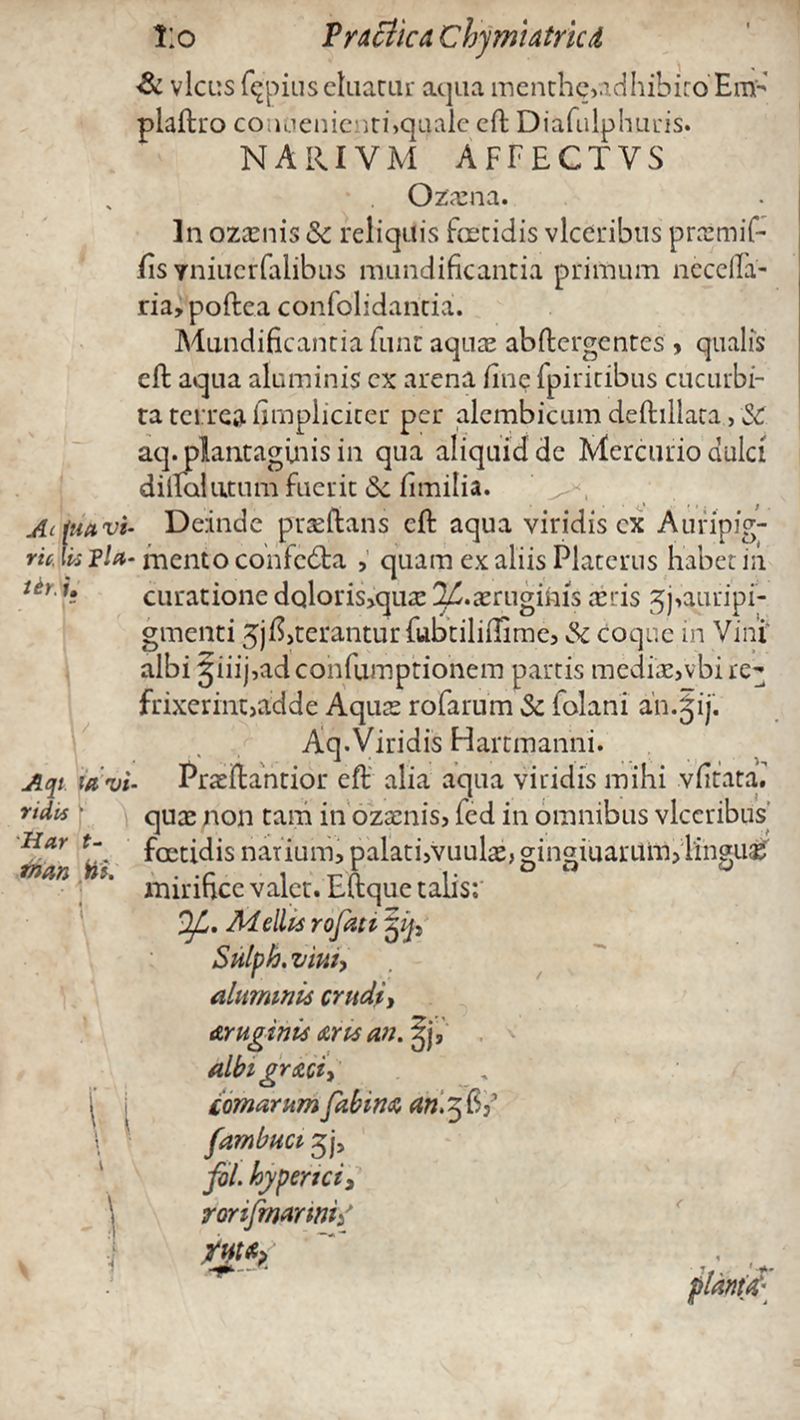 1:0 Practica Chymiatrica
& vlcus sępius eluatur aqua menthę,adhibito Em-
plastro conuenienti,quale est Diasulphuris.
NARIVM AFFECTVS
Ozæna.
In ozænis & reliquis fœtidis vlceribus præmis-
sis vniuersalibus mundificantia primum necessa-
ria, postea consolidantia.
Mundificantia sunt aquæ abstergentes, qualis
est aqua aluminis ex arena sine spiritibus cucurbi-
ta terrea simpliciter per alembicum destillata, &
aq. plantaginis in qua aliquid de Mercurio dulci
dissolutum fuerit & similia.
Aqua vi-
ridis Pla-
teri.
Deinde præstans est aqua viridis ex Auripig-
mento confecta, quam ex aliis Platerus habet in
curatione doloris,quæ ℞.æruginis æris ʒj,auripi-
gmenti ʒjß,terantur subtilissime, & coque in Vini
albi ℥iiij,ad consumptionem partis mediæ,vbi re-
frixerint,adde Aquæ rosarum & solani an.℥ij.
Aq.Viridis Hartmanni.
Aqua vi-
ridis
Hart-
manni.
Præstantior est alia aqua viridis mihi vsitata,
quæ non tam in ozænis, sed in omnibus vlceribus
fœtidis narium, palati,vuulæ, gingiuarum, linguæ
mirifice valet. Estque talis:
℞. Mellis rosati ℥ij,
Sulph. viui,
aluminis crudi,
æruginis æris an. ℥j,
albi græci,
comarum sabinæ an.ʒß,
sambuci ʒj,
fol. hyperici,
rorismarini,
rutæ,
planta-